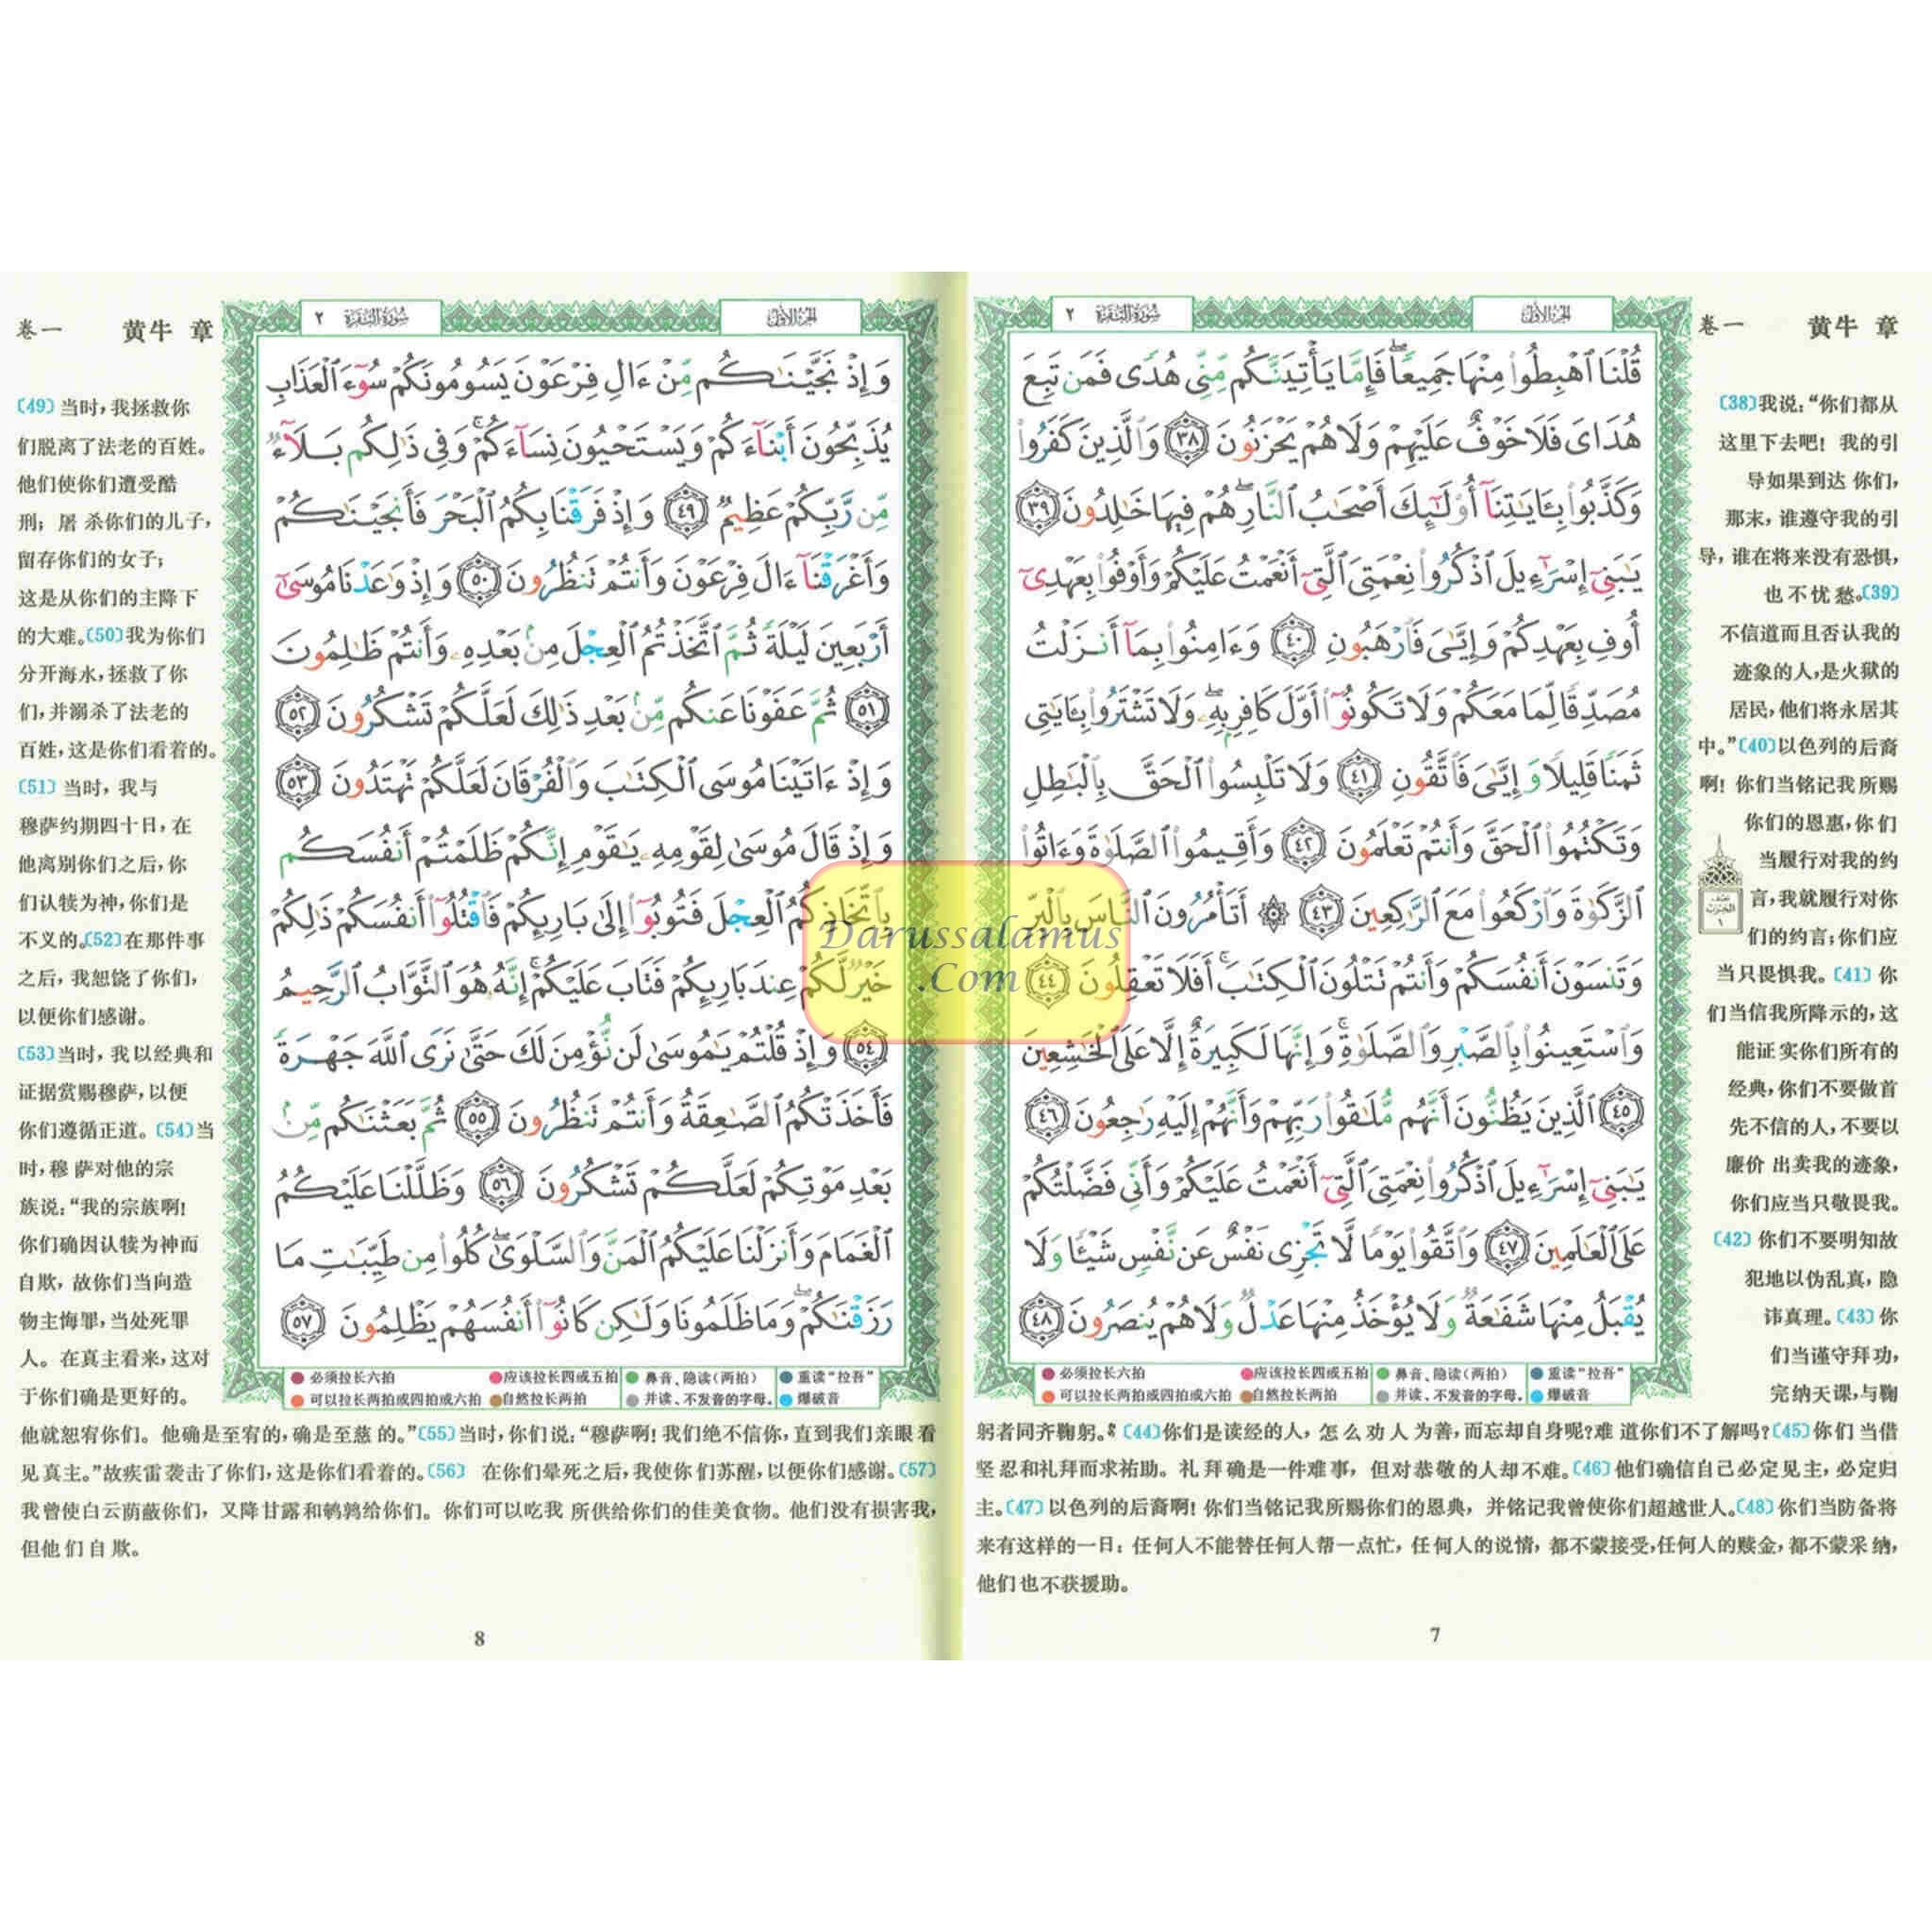 الجزء الأول
سورة البقرة ٢
قُلْنَا ٱهْبِطُوا۟ مِنْهَا جَمِيعًا ۖ فَإِمَّا يَأْتِيَنَّكُم مِّنِّى هُدًى فَمَن تَبِعَ
هُدَاىَ فَلَا خَوْفٌ عَلَيْهِمْ وَلَا هُمْ يَحْزَنُونَ ٣٨ وَٱلَّذِينَ كَفَرُوا۟
وَكَذَّبُوا۟ بِـَٔايَـٰتِنَآ أُو۟لَـٰٓئِكَ أَصْحَـٰبُ ٱلنَّارِ ۖ هُمْ فِيهَا خَـٰلِدُونَ ٣٩
يَـٰبَنِىٓ إِسْرَٰٓءِيلَ ٱذْكُرُوا۟ نِعْمَتِىَ ٱلَّتِىٓ أَنْعَمْتُ عَلَيْكُمْ وَأَوْفُوا۟ بِعَهْدِىٓ
أُوفِ بِعَهْدِكُمْ وَإِيَّـٰىَ فَٱرْهَبُونِ ٤٠ وَءَامِنُوا۟ بِمَآ أَنزَلْتُ
مُصَدِّقًا لِّمَا مَعَكُمْ وَلَا تَكُونُوٓا۟ أَوَّلَ كَافِرٍۭ بِهِۦ ۖ وَلَا تَشْتَرُوا۟ بِـَٔايَـٰتِى
ثَمَنًا قَلِيلًا وَإِيَّـٰىَ فَٱتَّقُونِ ٤١ وَلَا تَلْبِسُوا۟ ٱلْحَقَّ بِٱلْبَـٰطِلِ
وَتَكْتُمُوا۟ ٱلْحَقَّ وَأَنتُمْ تَعْلَمُونَ ٤٢ وَأَقِيمُوا۟ ٱلصَّلَوٰةَ وَءَاتُوا۟
ٱلزَّكَوٰةَ وَٱرْكَعُوا۟ مَعَ ٱلرَّٰكِعِينَ ٤٣ ۞ أَتَأْمُرُونَ ٱلنَّاسَ بِٱلْبِرِّ
وَتَنسَوْنَ أَنفُسَكُمْ وَأَنتُمْ تَتْلُونَ ٱلْكِتَـٰبَ ۚ أَفَلَا تَعْقِلُونَ ٤٤
وَٱسْتَعِينُوا۟ بِٱلصَّبْرِ وَٱلصَّلَوٰةِ ۚ وَإِنَّهَا لَكَبِيرَةٌ إِلَّا عَلَى ٱلْخَـٰشِعِينَ
٤٥ ٱلَّذِينَ يَظُنُّونَ أَنَّهُم مُّلَـٰقُوا۟ رَبِّهِمْ وَأَنَّهُمْ إِلَيْهِ رَٰجِعُونَ ٤٦
يَـٰبَنِىٓ إِسْرَٰٓءِيلَ ٱذْكُرُوا۟ نِعْمَتِىَ ٱلَّتِىٓ أَنْعَمْتُ عَلَيْكُمْ وَأَنِّى فَضَّلْتُكُمْ
عَلَى ٱلْعَـٰلَمِينَ ٤٧ وَٱتَّقُوا۟ يَوْمًا لَّا تَجْزِى نَفْسٌ عَن نَّفْسٍ شَيْـًٔا وَلَا
يُقْبَلُ مِنْهَا شَفَـٰعَةٌ وَلَا يُؤْخَذُ مِنْهَا عَدْلٌ وَلَا هُمْ يُنصَرُونَ ٤٨
卷一 黄牛 章
〔38〕我说:“你们都从
这里下去吧! 我的引
导如果到达 你们,
那末,谁遵守我的引
导,谁在将来没有恐惧,
也不忧愁。〔39〕
不信道而且否认我的
迹象的人,是火狱的
居民,他们将永居其
中。”〔40〕以色列的后裔
啊! 你们当铭记我所赐
你们的恩惠,你们
当履行对我的约
言,我就履行对你
们的约言;你们应
当只畏惧我。〔41〕你
们当信我所降示的,这
能证实你们所有的
经典,你们不要做首
先不信的人,不要以
廉价 出卖我的迹象,
你们应当只敬畏我。
〔42〕你们不要明知故
犯地以伪乱真,隐
讳真理。〔43〕你
们当谨守拜功,
完纳天课,与鞠
● 必须拉长六拍 ●应该拉长四或五拍 ● 鼻音、隐读(两拍) ● 重读“拉吾”
● 可以拉长两拍或四拍或六拍 ●自然拉长两拍 ● 并读、不发音的字母。 ● 爆破音
躬者同齐鞠躬。〔44〕你们是读经的人,怎么劝人为善,而忘却自身呢?难道你们不了解吗?〔45〕你们当借
坚忍和礼拜而求祐助。礼拜确是一件难事,但对恭敬的人却不难。〔46〕他们确信自己必定见主,必定归
主。〔47〕以色列的后裔啊! 你们当铭记我所赐你们的恩典, 并铭记我曾使你们超越世人。〔48〕你们当防备将
来有这样的一日: 任何人不能替任何人帮一点忙, 任何人的说情, 都不蒙接受,任何人的赎金,都不蒙采纳,
他们也不获援助。
7
الجزء الأول
سورة البقرة ٢
وَإِذْ نَجَّيْنَـٰكُم مِّنْ ءَالِ فِرْعَوْنَ يَسُومُونَكُمْ سُوٓءَ ٱلْعَذَابِ
يُذَبِّحُونَ أَبْنَآءَكُمْ وَيَسْتَحْيُونَ نِسَآءَكُمْ ۚ وَفِى ذَٰلِكُم بَلَآءٌ
مِّن رَّبِّكُمْ عَظِيمٌ ٤٩ وَإِذْ فَرَقْنَا بِكُمُ ٱلْبَحْرَ فَأَنجَيْنَـٰكُمْ
وَأَغْرَقْنَآ ءَالَ فِرْعَوْنَ وَأَنتُمْ تَنظُرُونَ ٥٠ وَإِذْ وَٰعَدْنَا مُوسَىٰٓ
أَرْبَعِينَ لَيْلَةً ثُمَّ ٱتَّخَذْتُمُ ٱلْعِجْلَ مِنۢ بَعْدِهِۦ وَأَنتُمْ ظَـٰلِمُونَ
٥١ ثُمَّ عَفَوْنَا عَنكُم مِّنۢ بَعْدِ ذَٰلِكَ لَعَلَّكُمْ تَشْكُرُونَ ٥٢
وَإِذْ ءَاتَيْنَا مُوسَى ٱلْكِتَـٰبَ وَٱلْفُرْقَانَ لَعَلَّكُمْ تَهْتَدُونَ ٥٣
وَإِذْ قَالَ مُوسَىٰ لِقَوْمِهِۦ يَـٰقَوْمِ إِنَّكُمْ ظَلَمْتُمْ أَنفُسَكُم
بِٱتِّخَاذِكُمُ ٱلْعِجْلَ فَتُوبُوٓا۟ إِلَىٰ بَارِئِكُمْ فَٱقْتُلُوٓا۟ أَنفُسَكُمْ ذَٰلِكُمْ
خَيْرٌ لَّكُمْ عِندَ بَارِئِكُمْ فَتَابَ عَلَيْكُمْ ۚ إِنَّهُۥ هُوَ ٱلتَّوَّابُ ٱلرَّحِيمُ
٥٤ وَإِذْ قُلْتُمْ يَـٰمُوسَىٰ لَن نُّؤْمِنَ لَكَ حَتَّىٰ نَرَى ٱللَّهَ جَهْرَةً
فَأَخَذَتْكُمُ ٱلصَّـٰعِقَةُ وَأَنتُمْ تَنظُرُونَ ٥٥ ثُمَّ بَعَثْنَـٰكُم مِّنۢ
بَعْدِ مَوْتِكُمْ لَعَلَّكُمْ تَشْكُرُونَ ٥٦ وَظَلَّلْنَا عَلَيْكُمُ
ٱلْغَمَامَ وَأَنزَلْنَا عَلَيْكُمُ ٱلْمَنَّ وَٱلسَّلْوَىٰ ۖ كُلُوا۟ مِن طَيِّبَـٰتِ مَا
رَزَقْنَـٰكُمْ ۖ وَمَا ظَلَمُونَا وَلَـٰكِن كَانُوٓا۟ أَنفُسَهُمْ يَظْلِمُونَ ٥٧
卷一 黄牛 章
〔49〕当时,我拯救你
们脱离了法老的百姓。
他们使你们遭受酷
刑; 屠杀你们的儿子,
留存你们的女子;
这是从你们的主降下
的大难。〔50〕我为你们
分开海水,拯救了你
们,并溺杀了法老的
百姓,这是你们看着的。
〔51〕当时,我与
穆萨约期四十日,在
他离别你们之后,你
们认犊为神,你们是
不义的。〔52〕在那件事
之后,我恕饶了你们,
以便你们感谢。
〔53〕当时,我以经典和
证据赏赐穆萨,以便
你们遵循正道。〔54〕当
时,穆萨对他的宗
族说:“我的宗族啊!
你们确因认犊为神而
自欺, 故你们当向造
物主悔罪,当处死罪
人。在真主看来,这对
于你们确是更好的。
● 必须拉长六拍 ●应该拉长四或五拍 ● 鼻音、隐读(两拍) ● 重读“拉吾”
● 可以拉长两拍或四拍或六拍 ●自然拉长两拍 ● 并读、不发音的字母。 ● 爆破音
他就恕宥你们。他确是至宥的,确是至慈的。”〔55〕当时,你们说:“穆萨啊! 我们绝不信你,直到我们亲眼看
见真主。”故疾雷袭击了你们,这是你们看着的。〔56〕 在你们晕死之后,我使你们苏醒,以便你们感谢。〔57〕
我曾使白云荫蔽你们, 又降甘露和鹌鹑给你们。你们可以吃我 所供给你们的佳美食物。他们没有损害我,
但他们自欺。
8
Darussalamus
.Com